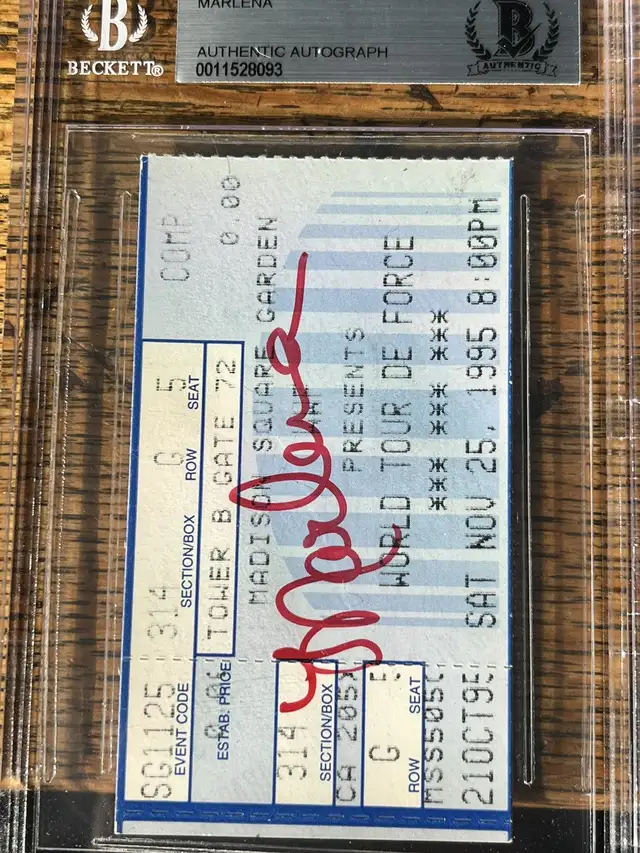 BECKETT®
MARLENA
AUTHENTIC AUTOGRAPH
0011528093
B
AUTHENTIC
COMP 0.00
314 G 5
SECTION/BOX ROW SEAT
TOWER B GATE 72
MADISON SQUARE GARDEN
WWF
PRESENTS
WORLD TOUR DE FORCE
*** *** ***
SAT NOV 25, 1995 8:00PM
Marlena
SG1125
EVENT CODE
ESTAB. PRICE
314
SECTION/BOX
G 5
ROW SEAT
21OCT95